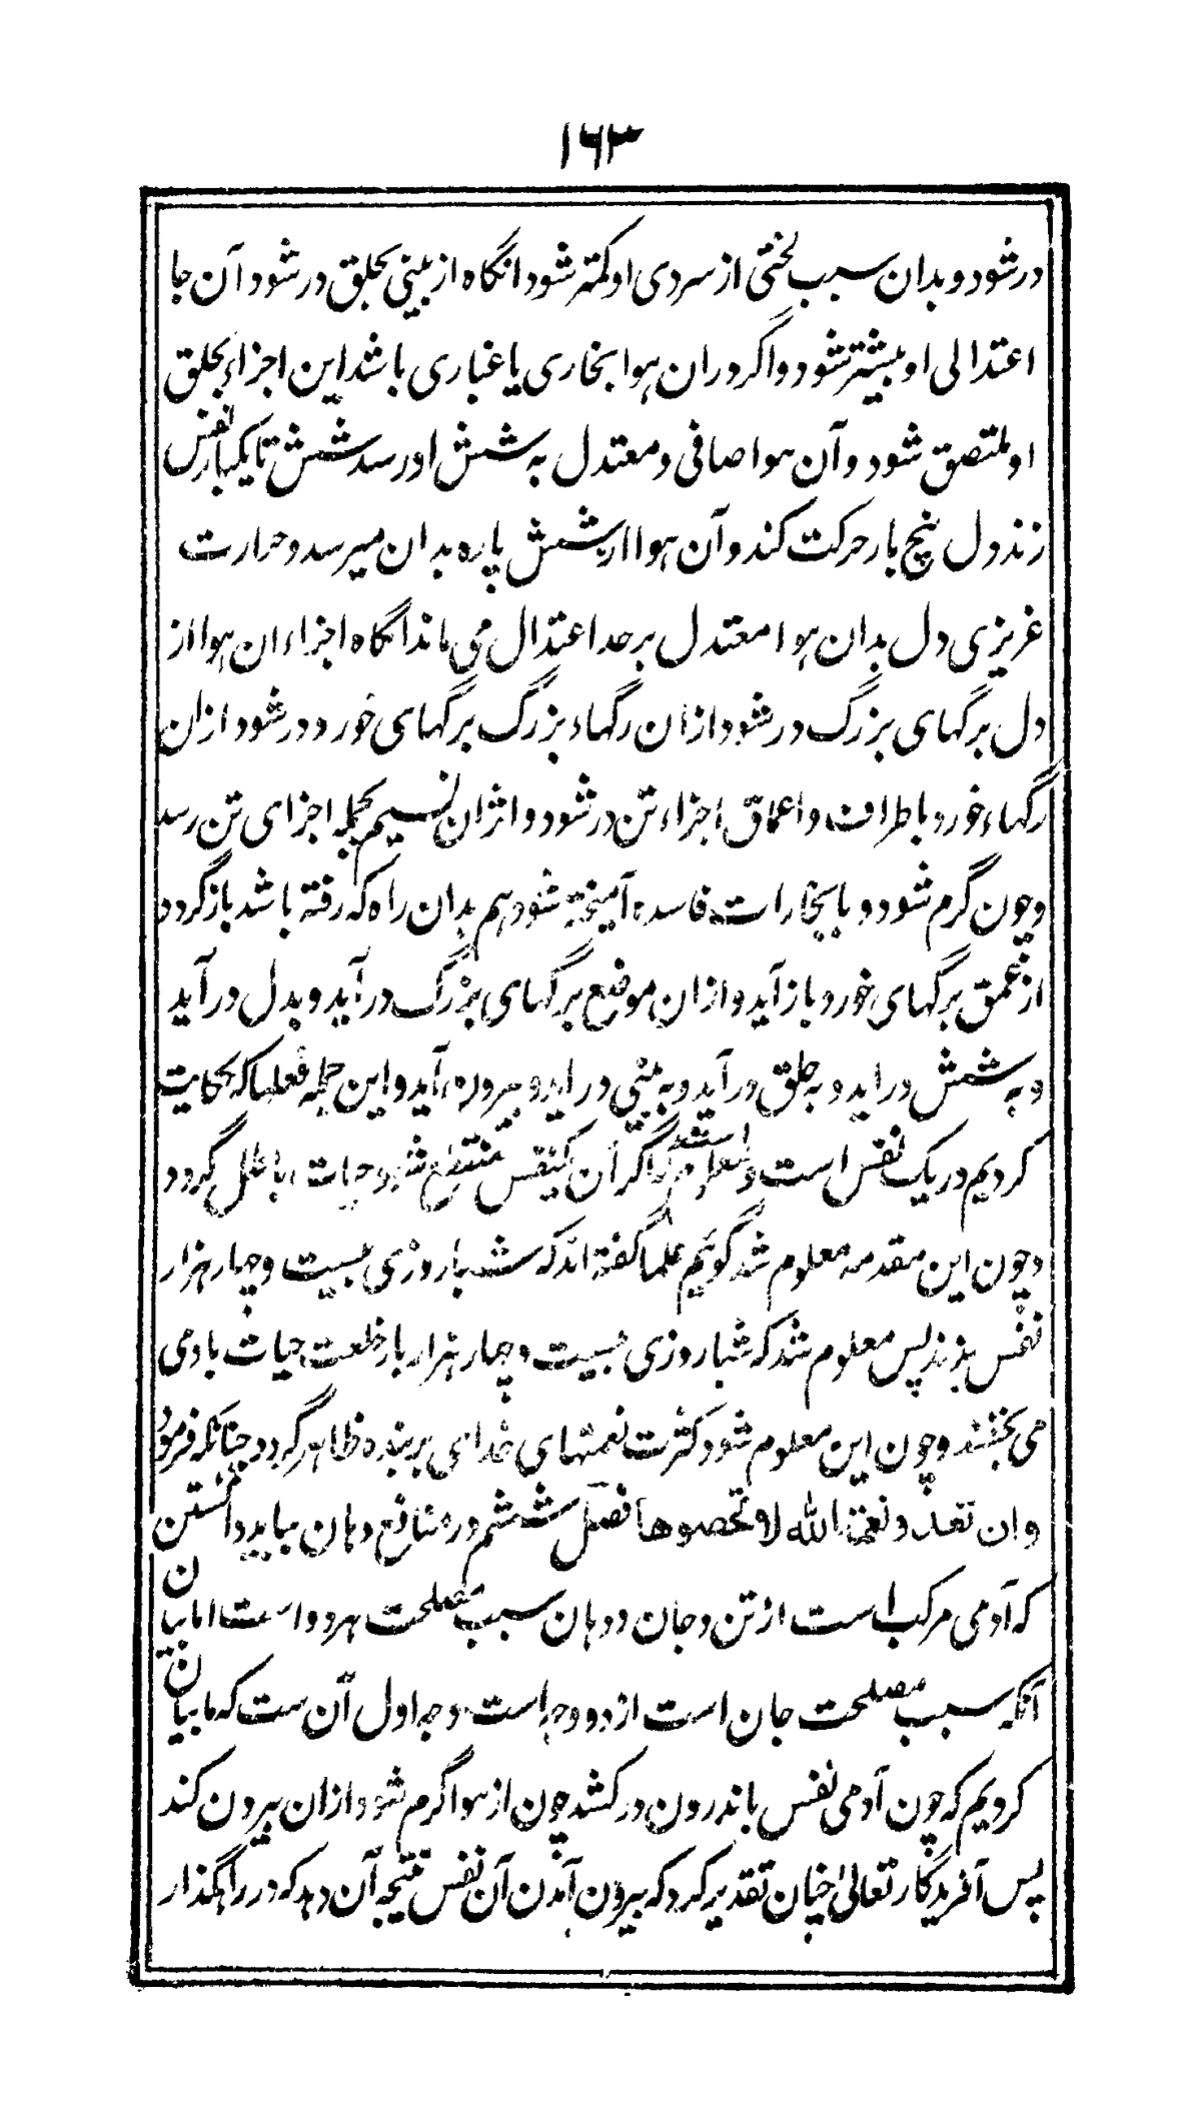 ۱۶۳
درشود و بدان سبب لختی از سردی او کمتر شود انگاه از بینی بحلق درشود آن جا
اعتدالی او بیشتر شود و اگر دران هوا بخاری یا غباری باشد این اجزاء بحلق
او ملتصق شود و آن هوا صافی و معتدل به شش او رسد شش تا یکبار نفس
زند دل پنج بار حرکت کند و آن هوا از شش پاره بدان میرسد و حرارت
غریزی دل بدان هوا معتدل بر حد اعتدال می ماند انگاه اجزاء ان هوا از
دل برگهای بزرگ درشود ازان رگهاء بزرگ برگهای خورد درشود ازان
رگهاء خورد باطراف و اعماق اجزاء تن درشود و اثر ان نسیم بجمله اجزای تن رسد
و چون گرم شود و با بخارات فاسده آمیخته شود هم بدان راه که رفته باشد باز گردد
از عمق برگهای خورد باز آید و ازان موضع برگهای بزرگ در آید و بدل در آید
و به شش دراید و به حلق در آید و به بینی دراید و بیرون آید و این جمله فعلها که حکایت
کردیم در یک نفس است و معلوم است که اگر آن یکنفس منقطع شود حیات باطل گردد
و چون این مقدمه معلوم شد گوئیم علما گفته اند که شباروزی بیست و چهار هزار
نفس بزند پس معلوم شد که شباروزی بیست و چهار هزار بار خلعت حیات بادمی
می بخشند و چون این معلوم شود کثرت نعمتهای خدای بر بنده ظاهر گردد چنانکه فرمود
وان تعدو نعمة الله لا تحصوها فصل ششم در منافع دهان بباید دانستن
که آدمی مرکب است از تن و جان و دهان سبب مصلحت هر دو است اما بیان
آنکه سبب مصلحت جان است از دو وجه است وجه اول آن ست که ما بیان
کردیم که چون آدمی نفس باندرون در کشد چون از هوا گرم شود ازان بیرون کند
پس آفریدگار تعالی چنان تقدیر کرد که بیرون آمدن آن نفس نتیجه آن دهد که در راهگذار